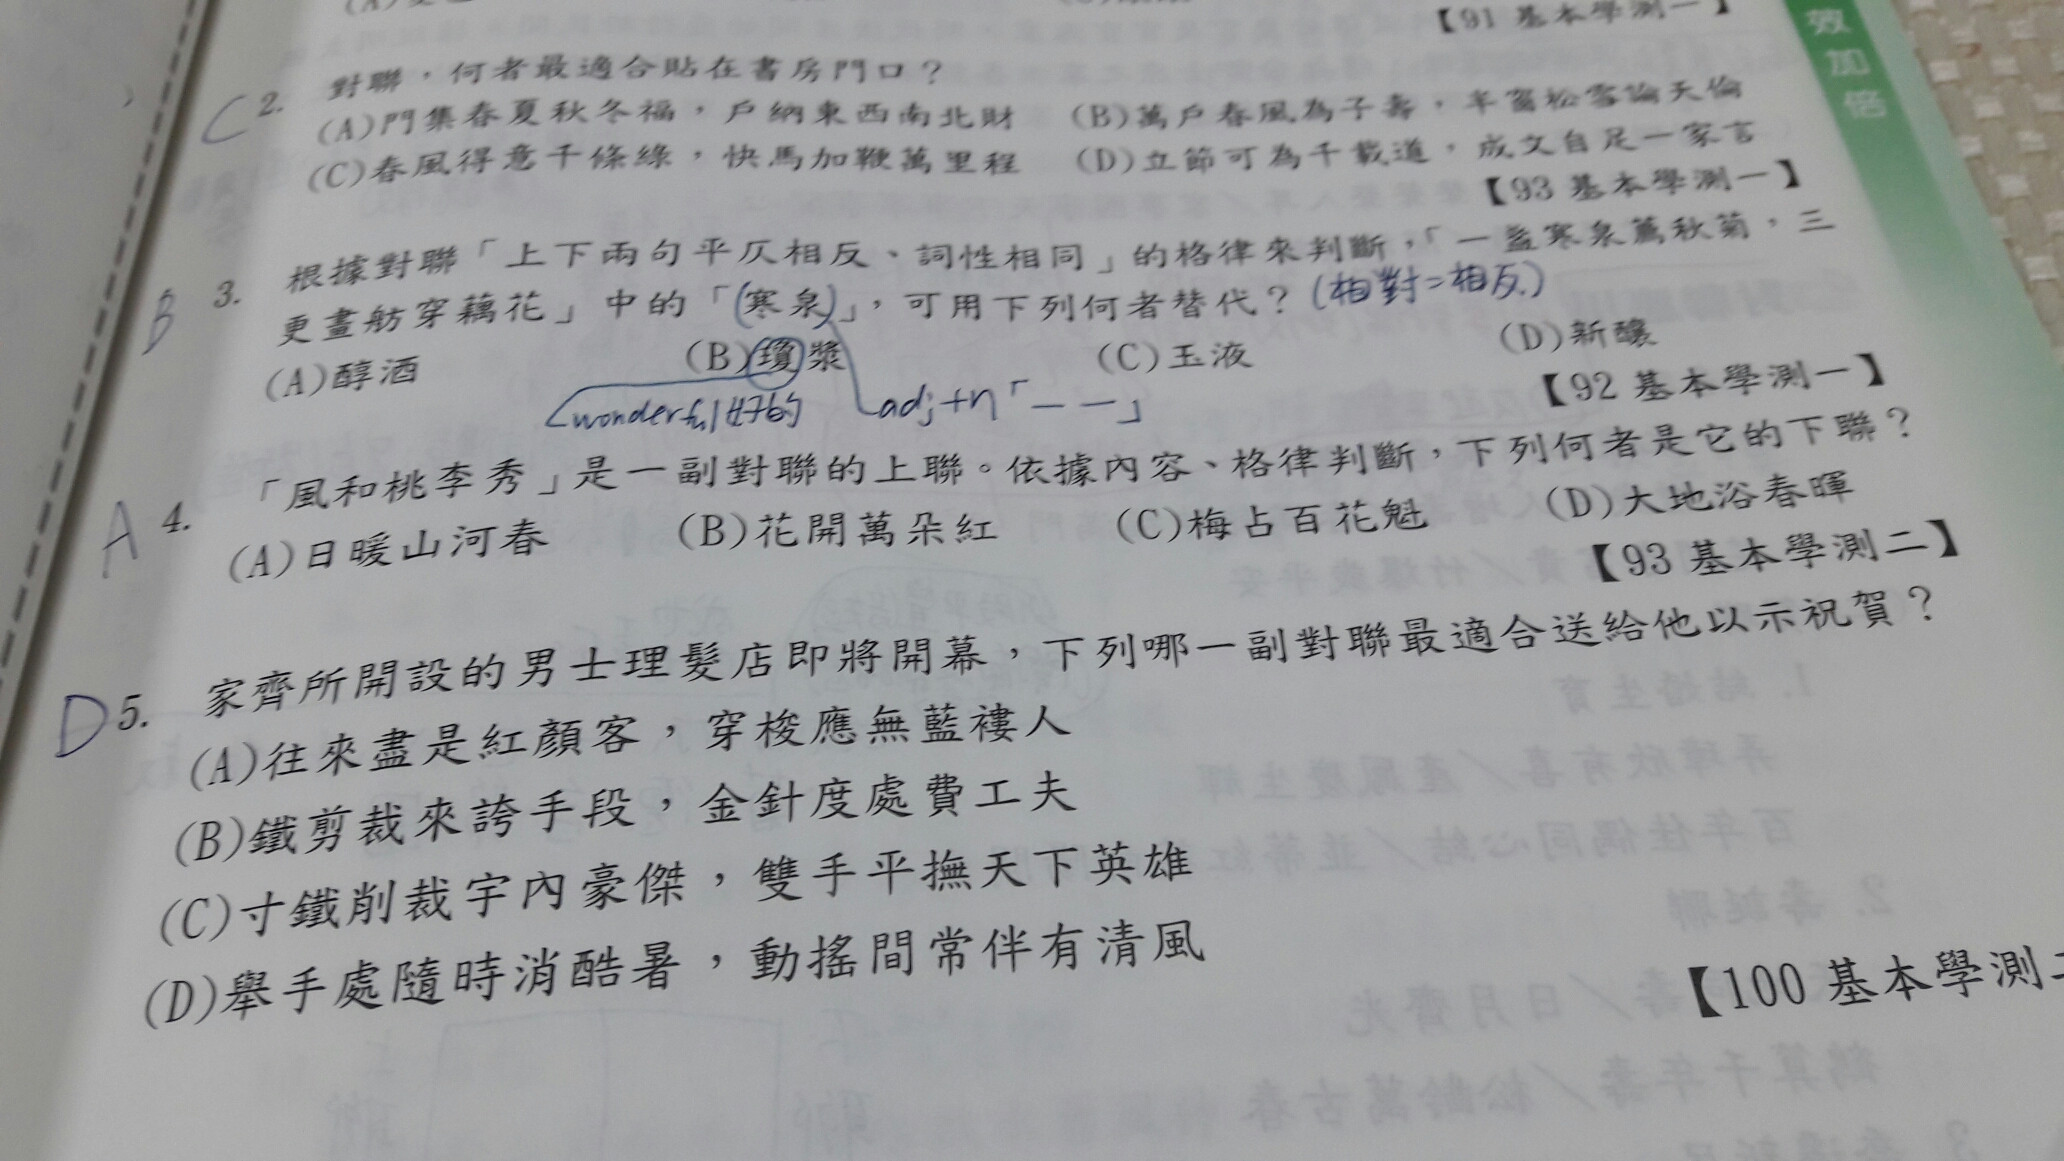 【91 基本學測一】
效加倍
C 2. 對聯,何者最適合貼在書房門口?
(A)門集春夏秋冬福,戶納東西南北財 (B)萬戶春風為子壽,半窗松雪論天倫
(C)春風得意千條綠,快馬加鞭萬里程 (D)立節可為千載道,成文自足一家言
【93 基本學測一】
B 3. 根據對聯「上下兩句平仄相反、詞性相同」的格律來判斷,「一盞寒泉薦秋菊,三
更畫舫穿藕花」中的「(寒泉)」,可用下列何者替代?(相對=相反)
(A)醇酒 (B)瓊漿 (C)玉液 (D)新釀
wonderful 好的 adj+n「— —」
【92 基本學測一】
A 4. 「風和桃李秀」是一副對聯的上聯。依據內容、格律判斷,下列何者是它的下聯?
(A)日暖山河春 (B)花開萬朵紅 (C)梅占百花魁 (D)大地浴春暉
【93 基本學測二】
D 5. 家齊所開設的男士理髮店即將開幕,下列哪一副對聯最適合送給他以示祝賀?
(A)往來盡是紅顏客,穿梭應無藍褸人
(B)鐵剪裁來誇手段,金針度處費工夫
(C)寸鐵削裁宇內豪傑,雙手平撫天下英雄
(D)舉手處隨時消酷暑,動搖間常伴有清風
【100 基本學測